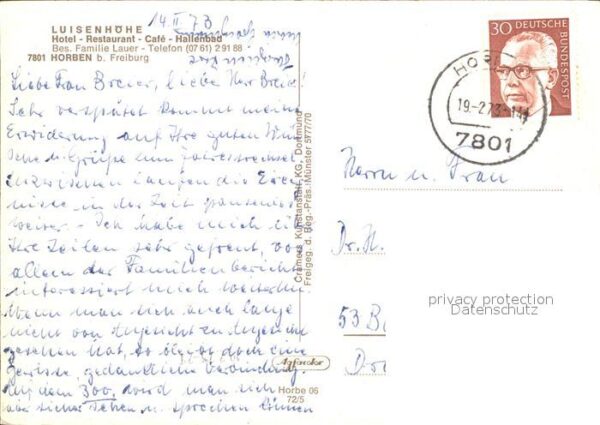 LUISENHÖHE
Hotel - Restaurant - Café - Hallenbad
Bes. Familie Lauer - Telefon (07 61) 2 91 88
7801 HORBEN b. Freiburg
14. II 73
Liebe Frau Breier, liebe Herr Breier!
Sehr verspätet kommt meine
Erwiderung auf Ihre guten Wün-
sche u. Grüße zum Jahreswechsel
Inzwischen laufen die Ereig-
nisse in der Zeit pausenlos
weiter. - Ich habe mich
Ihre Zeilen sehr gefreut, vor
allem der Familienbericht
interessiert mich weiterhin
Wenn man sich auch lange
nicht von Angesicht zu Angesicht
gesehen hat, so bleibt doch eine
gewisse gedankliche Verbindung.
300. wird man sich
aber sicher sehen u. sprechen können
Cramers Kunstanstalt KG, Dortmund
Freigeg. d. Reg.-Präs. Münster 5777/70
Agfacolor
Horbe 06
72/5
30 DEUTSCHE
BUNDESPOST
19.-2.73
7801
Herrn u. Frau
Dr. H.
53 B
privacy protection
Datenschutz